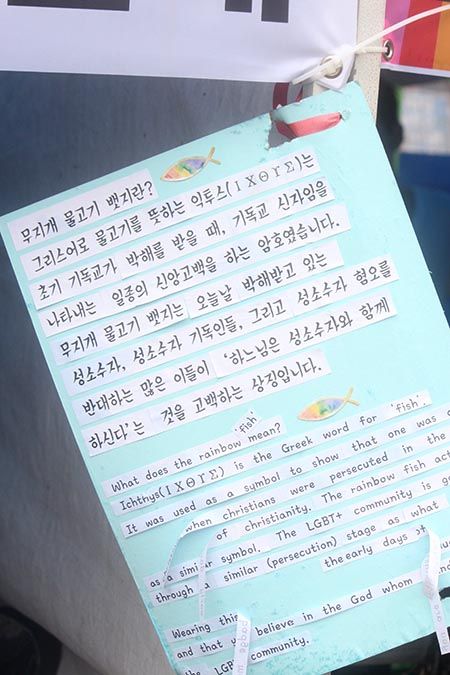 무지개 물고기 뱃지란?
그리스어로 물고기를 뜻하는 익투스(ΙΧΘΥΣ)는
초기 기독교가 박해를 받을 때, 기독교 신자임을
나타내는 일종의 신앙고백을 하는 암호였습니다.
무지개 물고기 뱃지는 오늘날 박해받고 있는
성소수자, 성소수자 기독인들, 그리고 성소수자 혐오를
반대하는 많은 이들이 '하느님은 성소수자와 함께
하신다'는 것을 고백하는 상징입니다.
What does the rainbow 'fish' mean?
Ichthys(ΙΧΘΥΣ) is the Greek word for 'fish'.
It was used as a symbol to show that one was a
when christians were persecuted in the
of christianity. The rainbow fish act
as a similar symbol. The LGBT+ community is go
through a similar (persecution) stage as what
the early days of
Wearing this
and that you believe in the God whom
the LGBT community.
badge